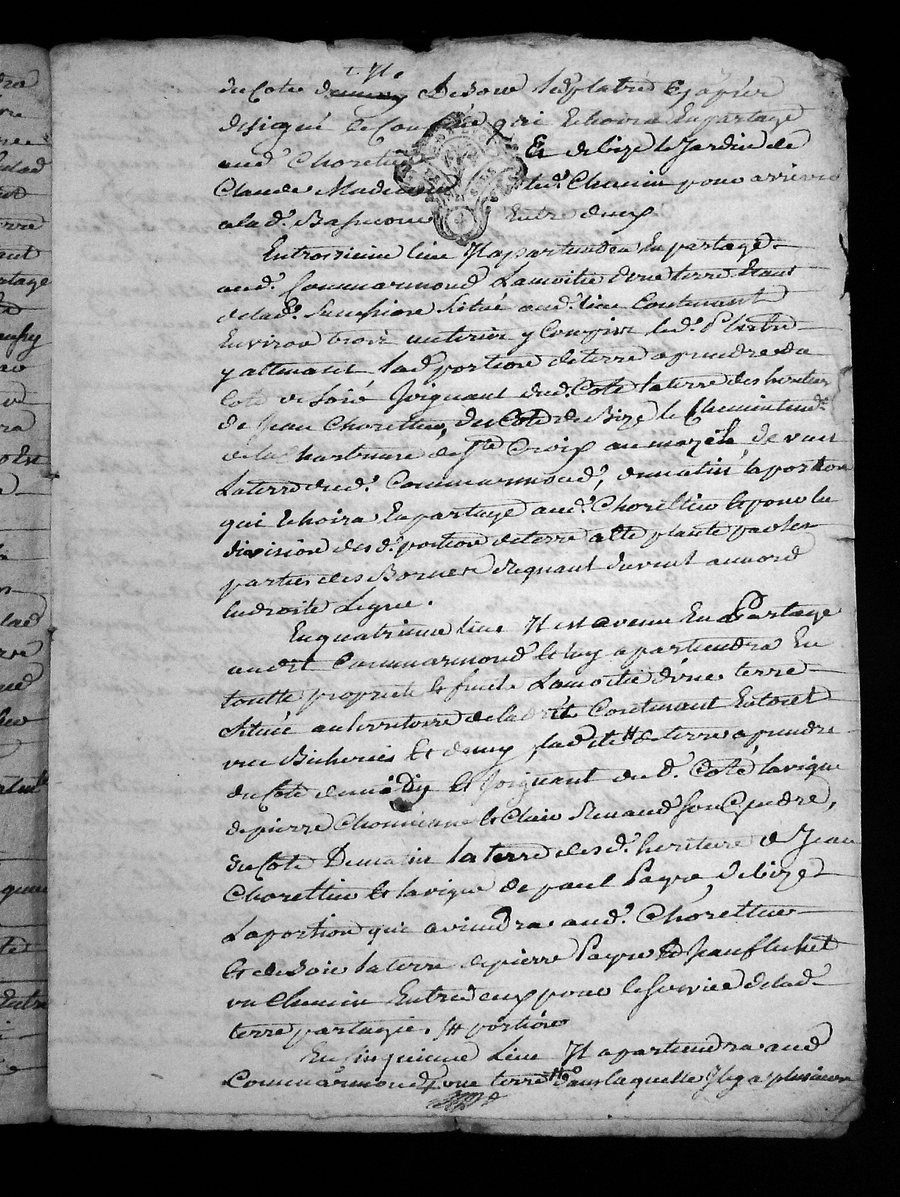 du Cote de Soir led. platre & japier
designé le qui Echoira En partage
aud. Chorettier Et de bize le Jardin de
Claude led. Chemin pour arriver
a lad. Entre deux
En troisieme lieu Il apartiendra En partage
aud. Commarmond La moitié d'une terre Etant
de lad. sucession situé aud. lieu Contenant
Environ trois meteries y Compris led. 
y attenant lad portion de terre a prendre du
Coté de soir Joignant dud. Coté la terre des heritier
de Jean Chorettier, du Coté de Bize le Chemin tend.
de la de Ste Croix au mazel de vent
La terre dud. Commarmond, de matin la portion
qui Echoira En partage aud. Chorettier & pour la
division desd. portion de terre a été planté par les
parties des Bornes du vent au nord
En droite Ligne.
En quatrieme lieu Il est avenu En Partage
audit Commarmond & luy apartiendra En
toutte proprieté & fruits La moitié d'une terre
située au territoire de la Contenant En tout
une Bicherées Et demy, ladite terre a prendre
du Coté de midy & Joignant dud. Coté la vigne
de pierre & Clair Renaud son Gendre,
du Coté De matin la terre desd. heritiers de Jean
Chorettier & la vigne de paul Payre de bize
La portion qui aviendra aud. Chorettier
& de soir la terre de pierre Payre
un Chemin Entre deux pour le service de lad
terre partagée. portion
En sinquieme Lieu Il apartiendra aud
Commarmond une terre dans laquelle Il y a plusieurs